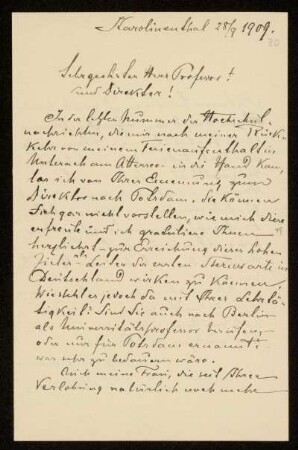 Karolinenthal 28/9 1909.
30
Sehrgeehrter Herr Professor!
und Direktor!
In der letzten Nummer der Hochschul-
nachrichten, die mir nach meiner Rück-
kehr von meinem Ferienaufenthalt in
Unterach am Attersee in die Hand kam,
las ich von Ihrer Ernennung zum
Direktor nach Potsdam. Sie können
Sich gar nicht vorstellen, wie mich diese
erfreute und ich gratuliere Ihnen
herzlichst zur Erreichung dieses hohen
Zieles als Leiter der ersten Sternwarte in
Deutschland wirken zu können.
Wie steht es jedoch da mit Ihrer Lehrtä-
tigkeit? Sind Sie auch nach Berlin
als Universitätsprofessor berufen,
oder nur für Potsdam ernannt?
was sehr zu bedauern wäre.
Auch meine Frau, die seit Ihrer
Verlobung natürlich noch mehr